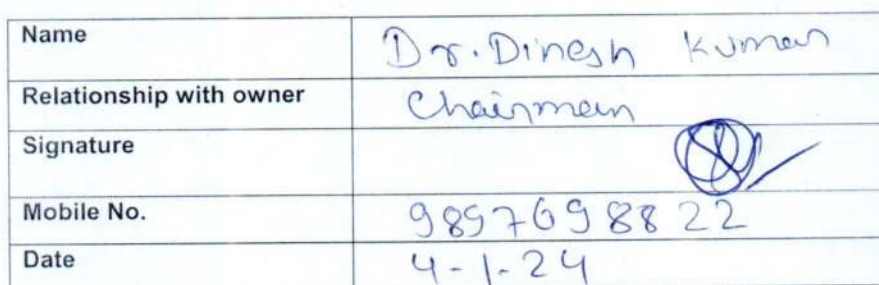 Name Dr. Dinesh Kumar
Relationship with owner Chairman
Signature
Mobile No. 9897698822
Date 4-1-24